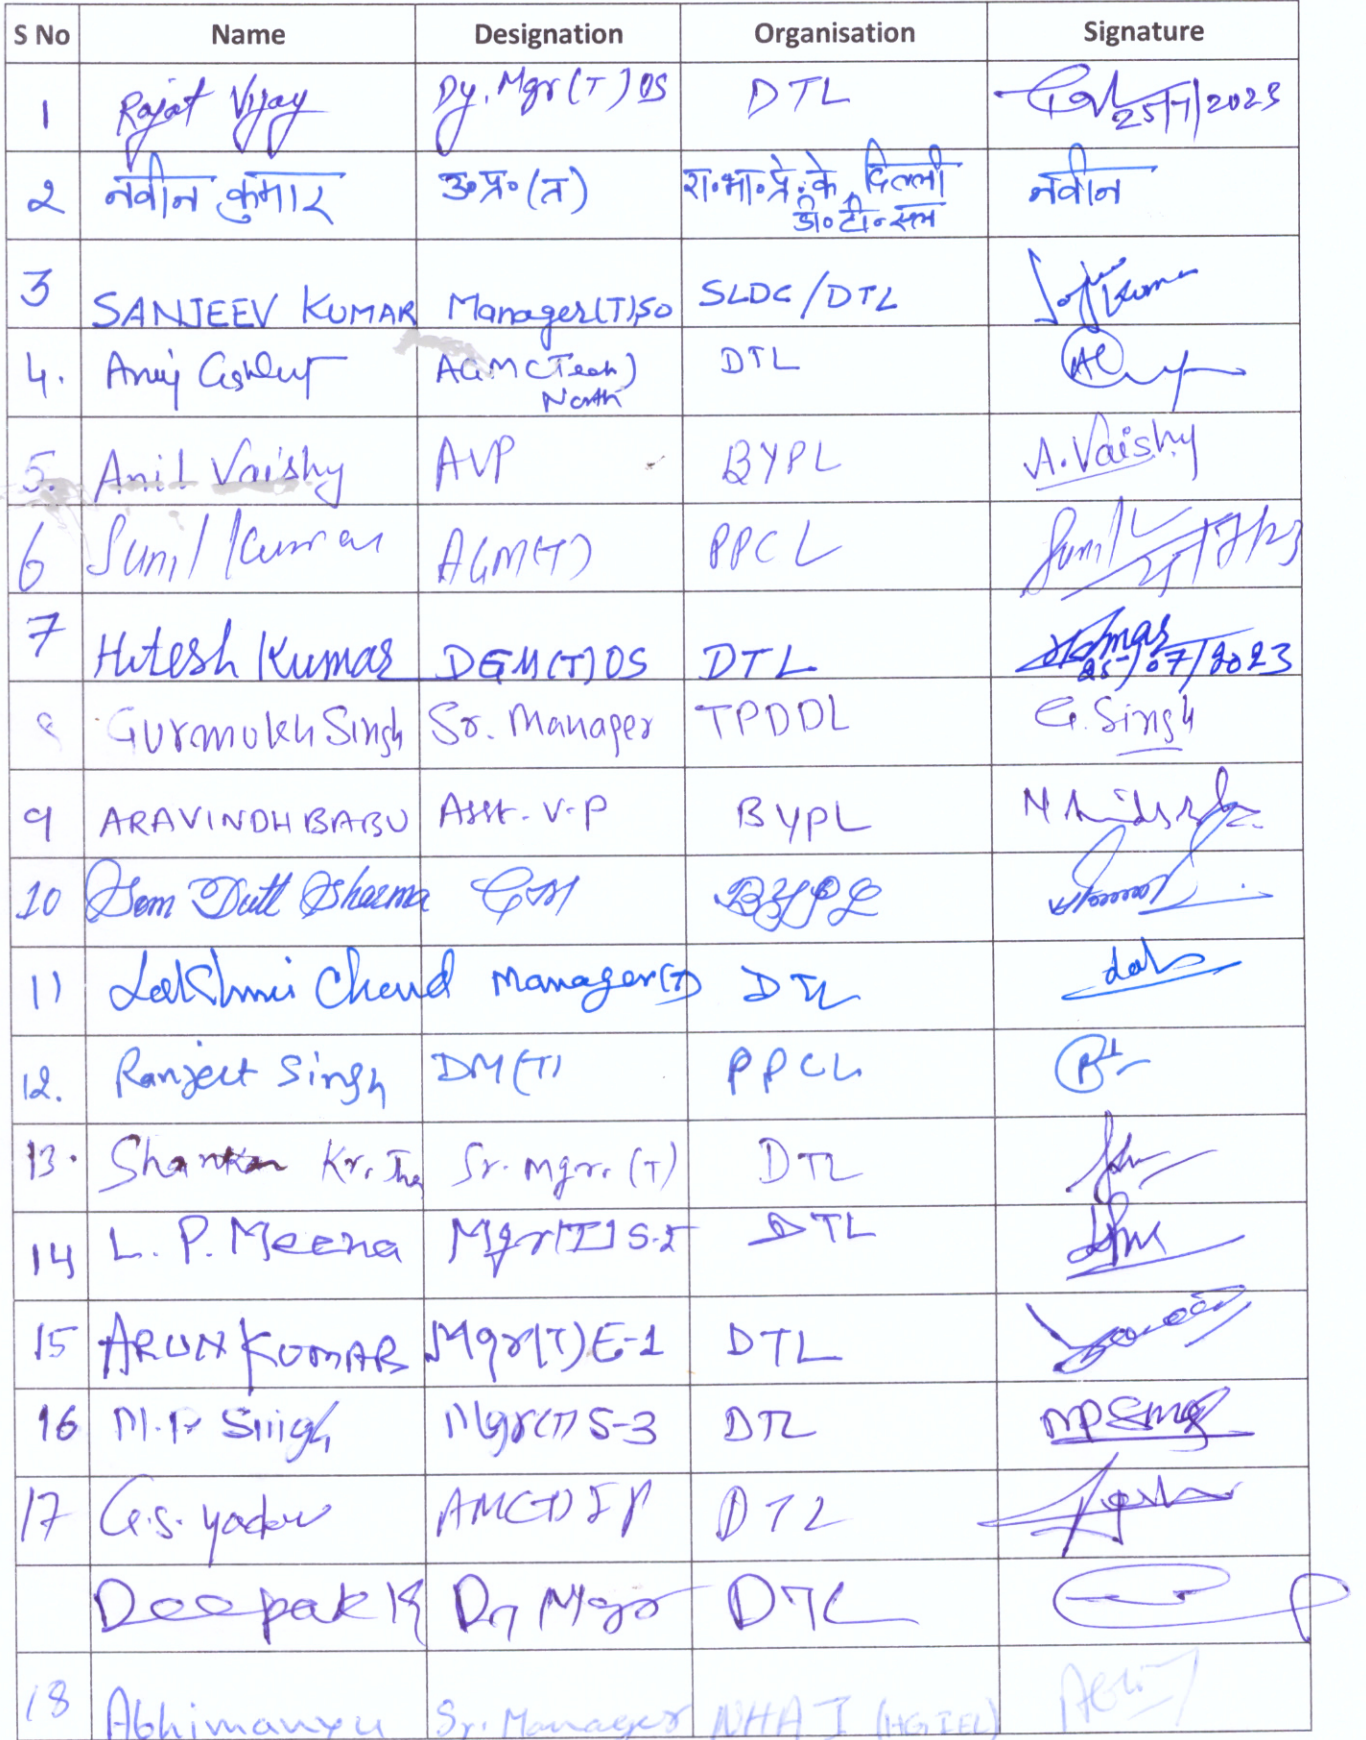 S No Name Designation Organisation Signature
1 Rajat Vijay Dy. Mgr (T) OS DTL 25/7/2023
2 नवीन कुमार उ०प्र० (त) रा०भा०प्रे०के दिल्ली नवीन
डी०टी०एल
3 SANJEEV KUMAR Manager(T)SO SLDC/DTL
4. Anuj AGM (Tech) DTL
North
5. Anil Vaishy AVP BYPL A. Vaishy
6 Sunil Kumar AGM(T) PPCL Sunil
7 Hitesh Kumar DGM(T)OS DTL 25/07/2023
8 Gurmukh Singh Sr. Manager TPDDL G. Singh
9 ARAVINDH BABU Asst. V.P BYPL
10 Som Dutt Sharma GM BYPL
11 Lakshmi Chand Manager(T) DTL
12. Ranjeet Singh DM(T) PPCL
13. Shankar Kr. Jha Sr. Mgr. (T) DTL
14 L. P. Meena Mgr(T) S-I DTL
15 ARUN KUMAR Mgr(T) E-1 DTL
16 M.P Singh Mgr(T) S-3 DTL MPSingh
17 G.S. Yadav AM(T) DTL
Deepak K Dy Mgr DTL
18 Abhimanyu Sr. Manager NHAI (HGIEL)